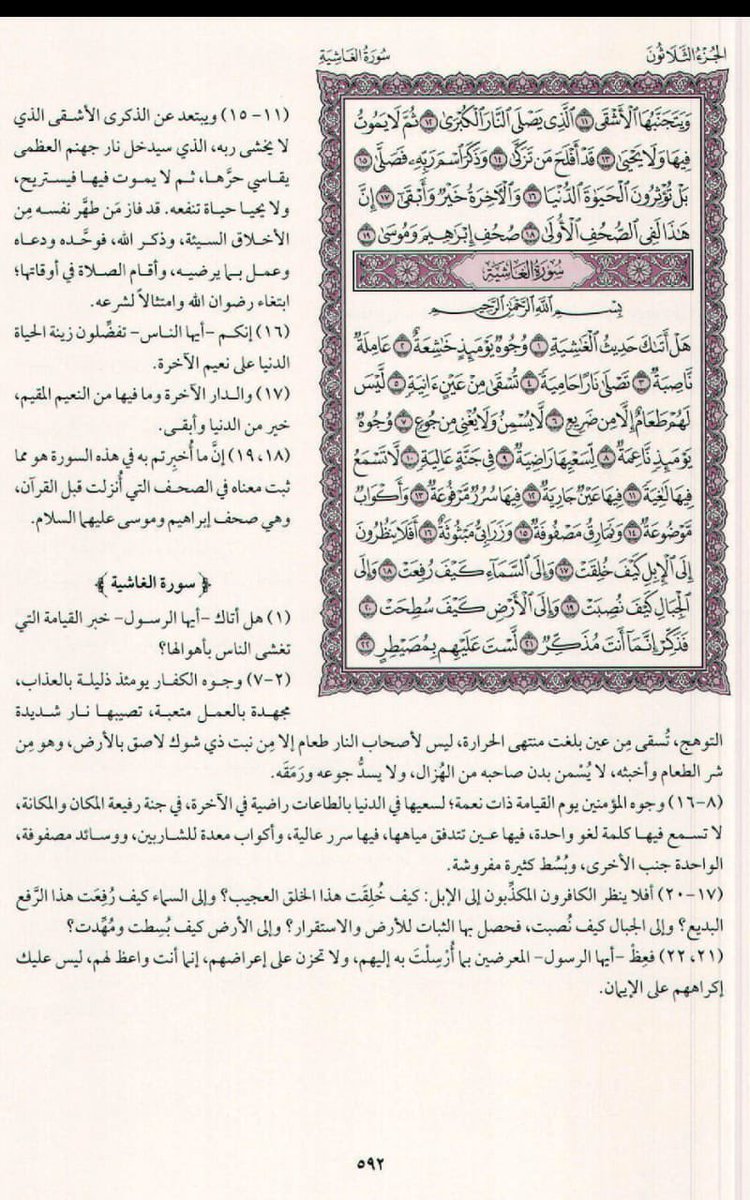 الجُزْءُ الثَّلَاثُونَ
سُورَةُ الغَاشِيَةِ
وَيَتَجَنَّبُهَا ٱلْأَشْقَى ١١ ٱلَّذِى يَصْلَى ٱلنَّارَ ٱلْكُبْرَىٰ ١٢ ثُمَّ لَا يَمُوتُ
فِيهَا وَلَا يَحْيَىٰ ١٣ قَدْ أَفْلَحَ مَن تَزَكَّىٰ ١٤ وَذَكَرَ ٱسْمَ رَبِّهِۦ فَصَلَّىٰ ١٥
بَلْ تُؤْثِرُونَ ٱلْحَيَوٰةَ ٱلدُّنْيَا ١٦ وَٱلْـَٔاخِرَةُ خَيْرٌ وَأَبْقَىٰٓ ١٧ إِنَّ
هَٰذَا لَفِى ٱلصُّحُفِ ٱلْأُولَىٰ ١٨ صُحُفِ إِبْرَٰهِيمَ وَمُوسَىٰ ١٩
سُورَةُ الغَاشِيَةِ
بِسْمِ ٱللَّهِ ٱلرَّحْمَٰنِ ٱلرَّحِيمِ
هَلْ أَتَىٰكَ حَدِيثُ ٱلْغَٰشِيَةِ ١ وُجُوهٌ يَوْمَئِذٍ خَٰشِعَةٌ ٢ عَامِلَةٌ
نَّاصِبَةٌ ٣ تَصْلَىٰ نَارًا حَامِيَةً ٤ تُسْقَىٰ مِنْ عَيْنٍ ءَانِيَةٍ ٥ لَّيْسَ
لَهُمْ طَعَامٌ إِلَّا مِن ضَرِيعٍ ٦ لَّا يُسْمِنُ وَلَا يُغْنِى مِن جُوعٍ ٧ وُجُوهٌ
يَوْمَئِذٍ نَّاعِمَةٌ ٨ لِّسَعْيِهَا رَاضِيَةٌ ٩ فِى جَنَّةٍ عَالِيَةٍ ١٠ لَّا تَسْمَعُ
فِيهَا لَٰغِيَةً ١١ فِيهَا عَيْنٌ جَارِيَةٌ ١٢ فِيهَا سُرُرٌ مَّرْفُوعَةٌ ١٣ وَأَكْوَابٌ
مَّوْضُوعَةٌ ١٤ وَنَمَارِقُ مَصْفُوفَةٌ ١٥ وَزَرَابِىُّ مَبْثُوثَةٌ ١٦ أَفَلَا يَنظُرُونَ
إِلَى ٱلْإِبِلِ كَيْفَ خُلِقَتْ ١٧ وَإِلَى ٱلسَّمَآءِ كَيْفَ رُفِعَتْ ١٨ وَإِلَى
ٱلْجِبَالِ كَيْفَ نُصِبَتْ ١٩ وَإِلَى ٱلْأَرْضِ كَيْفَ سُطِحَتْ ٢٠
فَذَكِّرْ إِنَّمَآ أَنتَ مُذَكِّرٌ ٢١ لَّسْتَ عَلَيْهِم بِمُصَيْطِرٍ ٢٢
(١١-١٥) ويبتعد عن الذكرى الأشـقى الذي
لا يخشى ربه، الذي سيدخل نار جهنم العظمى
يقـاسي حرَّهـا، ثـم لا يمـوت فيهـا فيستريح،
ولا يحيـا حيـاة تنفعه. قد فاز مَن طهَّر نفسـه مِن
الأخـلاق السـيئة، وذكـر الله، فوحَّـده ودعـاه
وعمـل بـما يرضيـه، وأقـام الصـلاة في أوقاتها؛
ابتغاء رضـوان الله وامتثالاً لشرعه.
(١٦) إنكـم -أيها النـاس- تفضِّلون زينة الحياة
الدنيا على نعيم الآخرة.
(١٧) والـدار الآخرة وما فيها من النعيم المقيم،
خير من الدنيا وأبقـى.
(١٨، ١٩) إنَّ ما أُخبِرتم به في هذه السورة هو مما
ثبت معناه في الصحـف التي أُنزلت قبل القرآن،
وهي صحف إبراهيم وموسى عليهما السلام.
﴿ سورة الغاشية ﴾
(١) هل أتاك -أيها الرسـول- خبر القيامة التي
تغشى الناس بأهوالها؟
(٢-٧) وجـوه الكفـار يومئذ ذليلـة بالعذاب،
مجهدة بالعمـل متعبـة، تصيبهـا نـار شـديدة
التوهج، تُسقى مِن عين بلغت منتهى الحرارة، ليس لأصحاب النار طعام إلا مِن نبت ذي شوك لاصق بالأرض، وهو مِن
شر الطعام وأخبثه، لا يُسْمن بدن صاحبه من الهُزال، ولا يسدُّ جوعه ورَمَقَه.
(٨-١٦) وجوه المؤمنين يوم القيامة ذات نعمة؛ لسعيها في الدنيا بالطاعات راضية في الآخرة، في جنة رفيعة المكان والمكانة،
لا تـسمع فيهـا كلمة لغو واحدة، فيها عـين تتدفق مياهها، فيها سرر عالية، وأكواب معدة للشاربين، ووسائد مصفوفة،
الواحدة جنب الأخرى، وبُسُط كثيرة مفروشة.
(١٧-٢٠) أفلا ينظر الكافرون المكذِّبون إلى الإبل: كيف خُلِقَت هذا الخلق العجيب؟ وإلى السماء كيف رُفِعَت هذا الرَّفع
البديع؟ وإلى الجبال كيف نُصبت، فحصل بها الثبات للأرض والاستقرار؟ وإلى الأرض كيف بُسِطت ومُهِّدت؟
(٢١، ٢٢) فعِظْ -أيها الرسول- المعرضين بما أُرْسِلْتَ به إليهم، ولا تحزن على إعراضهم، إنما أنت واعظ لهم، ليس عليك
إكراههم على الإيمان.
٥٩٢